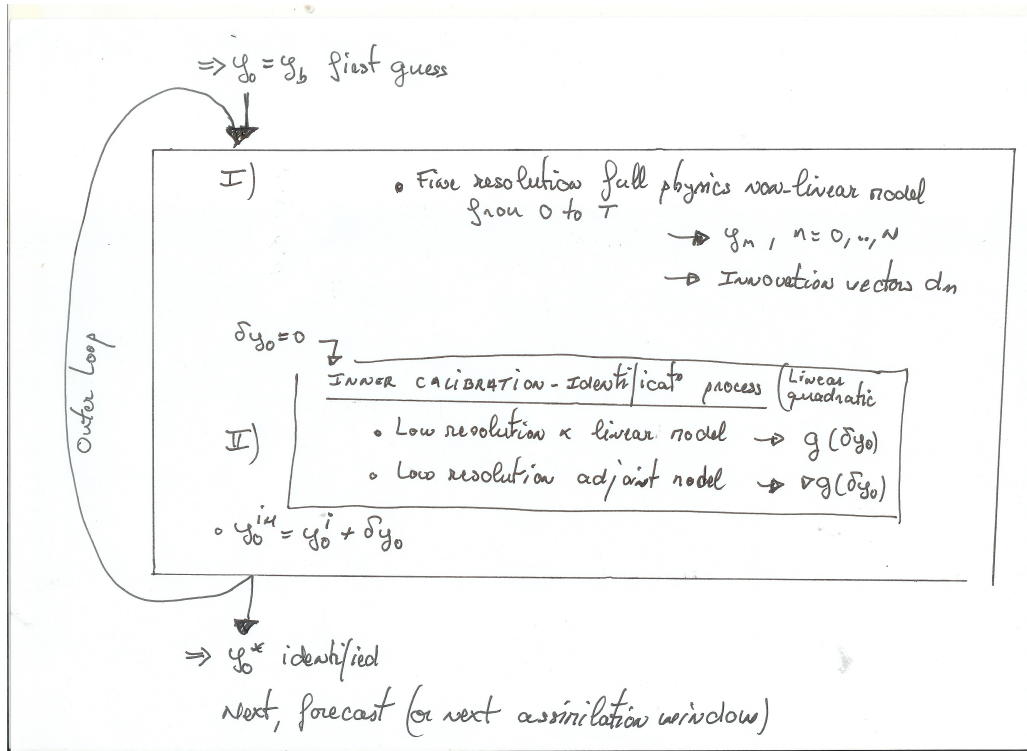 ⇒ y₀ = y_b first guess
I)
• Fine resolution full physics non-linear model
from 0 to T
→ yₙ, n = 0, .., N
→ Innovation vectors dₙ
Outer Loop
δy₀ = 0
INNER CALIBRATION - Identificat° process (Linear quadratic
II)
• Low resolution linear model → g(δy₀)
• Low resolution adjoint model → ∇g(δy₀)
• y₀ⁱ⁺¹ = y₀ⁱ + δy₀
⇒ y₀* identified
Next, forecast (or next assimilation window)